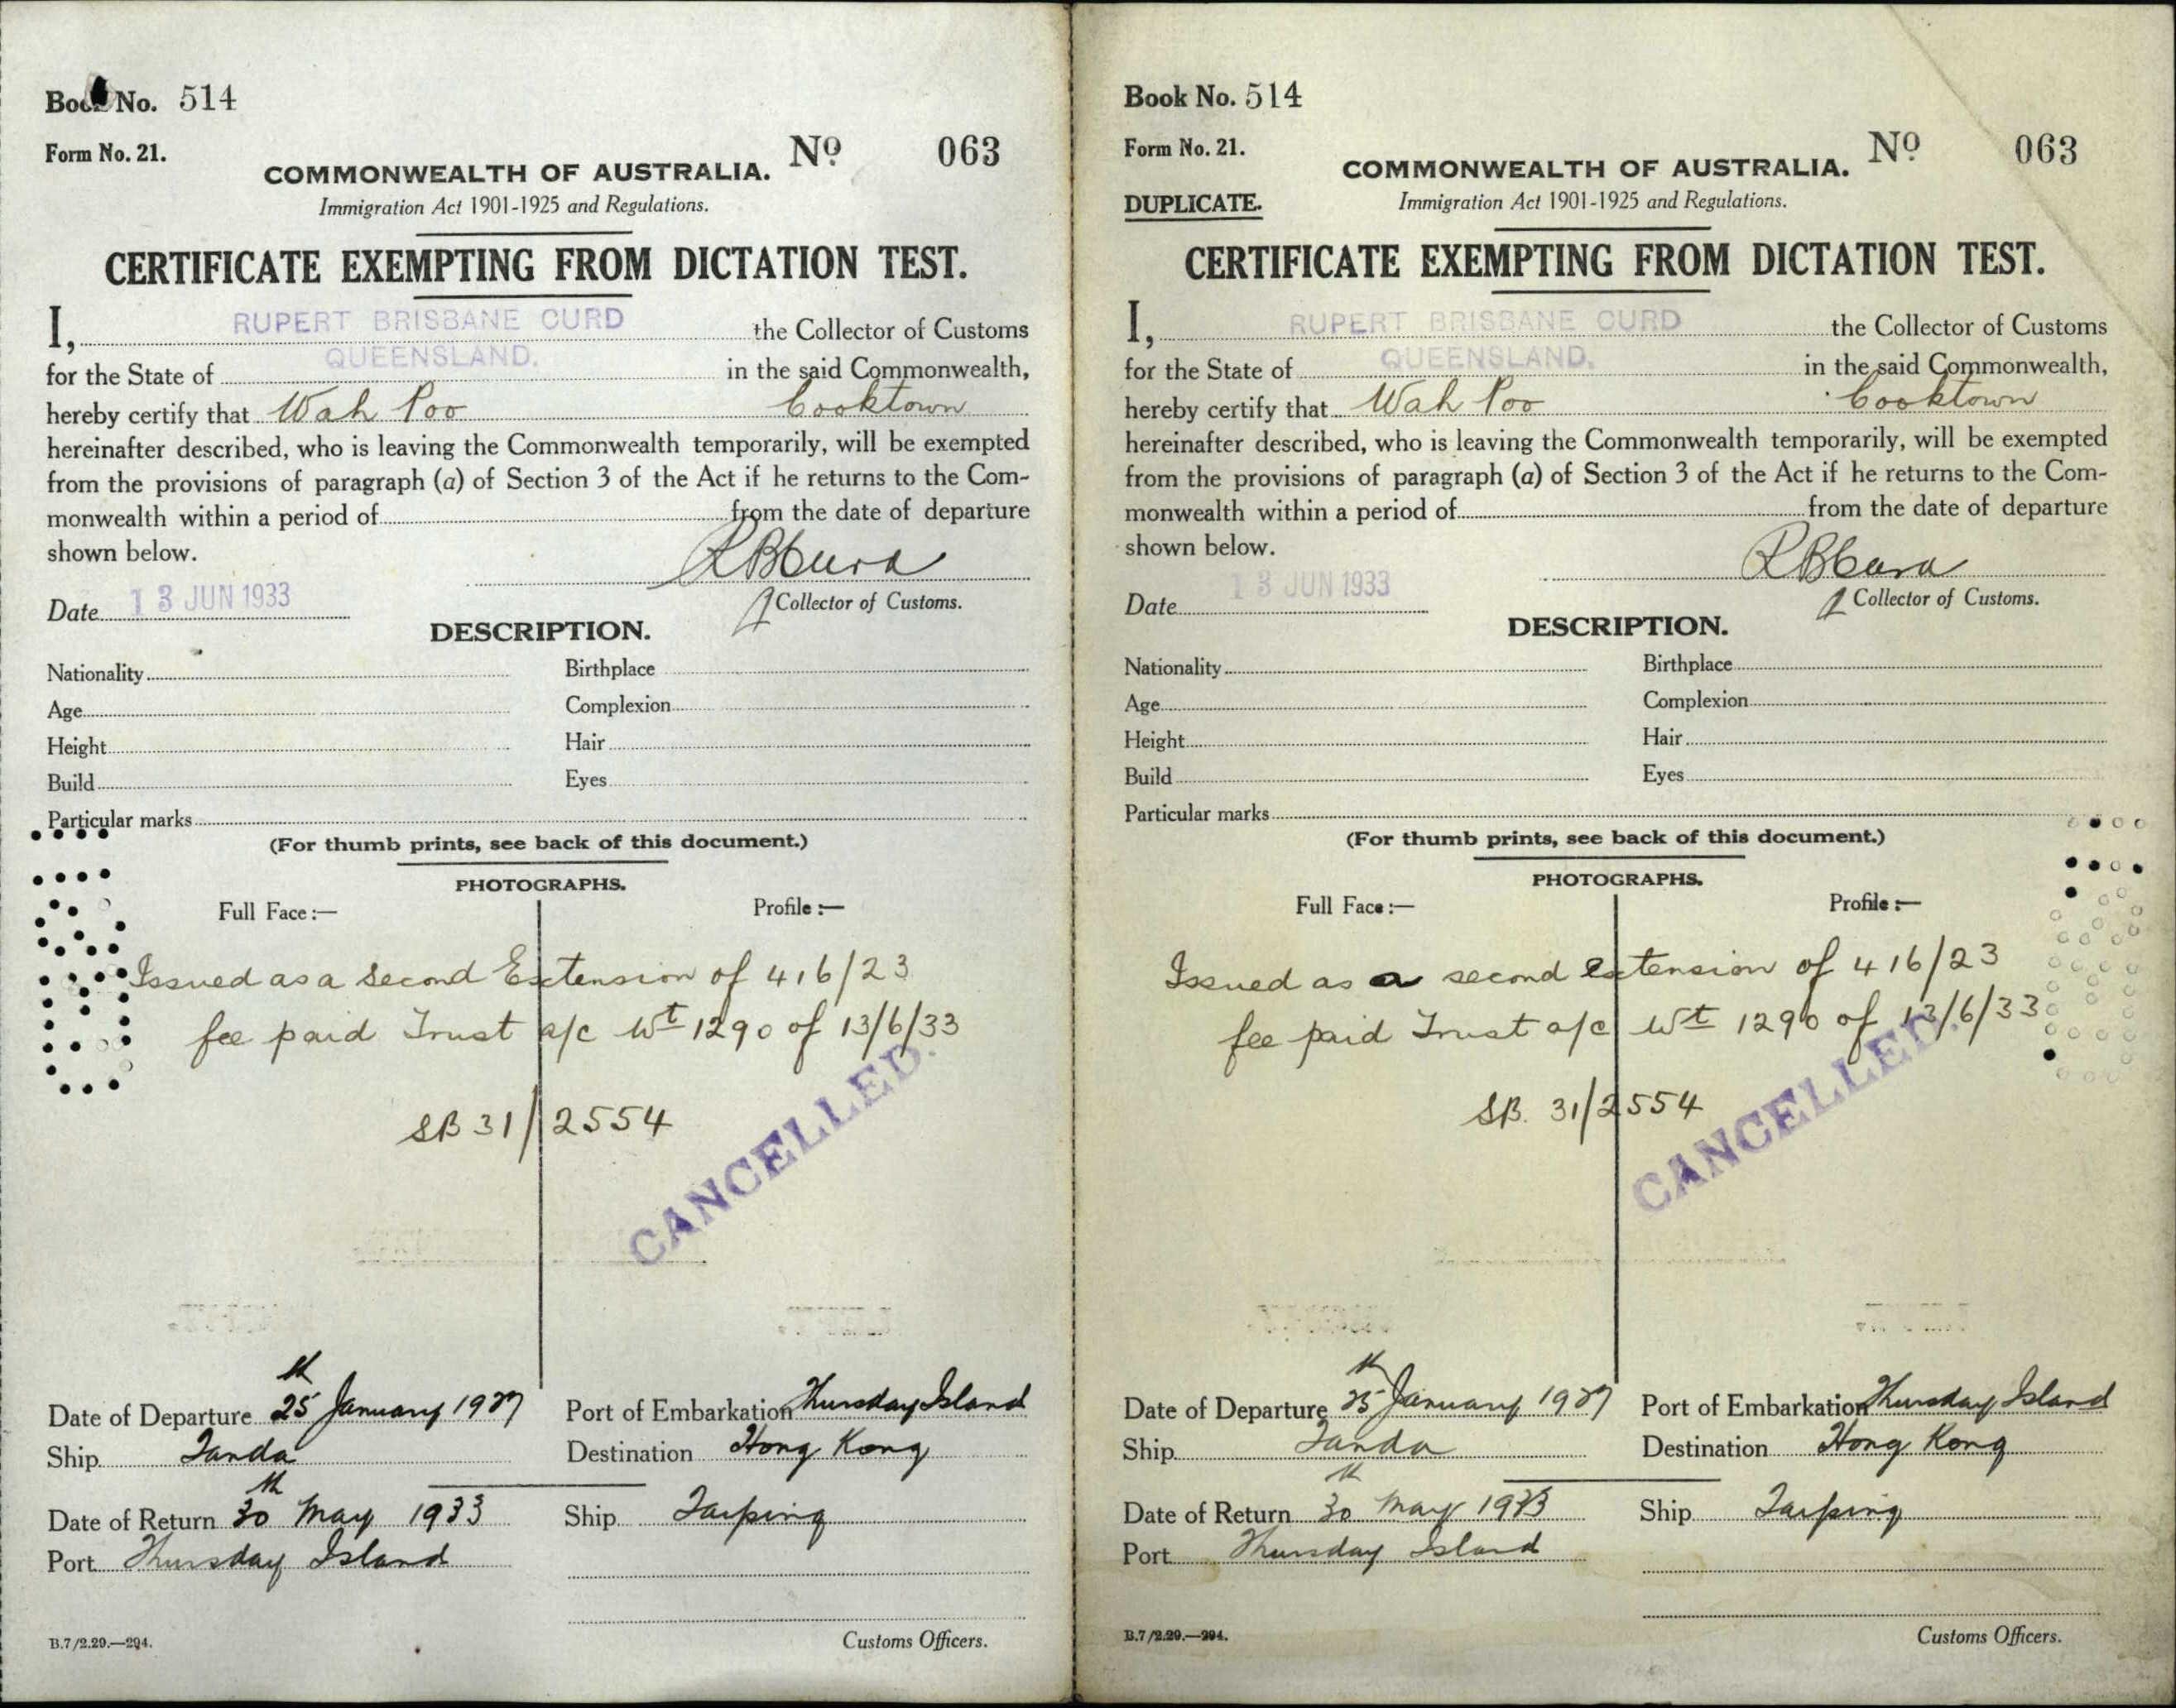 Book No. 514
Form No. 21.
Nº 063
COMMONWEALTH OF AUSTRALIA.
Immigration Act 1901-1925 and Regulations.
CERTIFICATE EXEMPTING FROM DICTATION TEST.
I, RUPERT BRISBANE CURD the Collector of Customs
for the State of QUEENSLAND. in the said Commonwealth,
hereby certify that Wah Poo Cooktown
hereinafter described, who is leaving the Commonwealth temporarily, will be exempted
from the provisions of paragraph (a) of Section 3 of the Act if he returns to the Com-
monwealth within a period of from the date of departure
shown below.
RBCurd
Date 13 JUN 1933
Collector of Customs.
DESCRIPTION.
Nationality Birthplace
Age Complexion
Height Hair
Build Eyes
Particular marks
(For thumb prints, see back of this document.)
PHOTOGRAPHS.
Full Face:— Profile:—
Issued as a Second Extension of 416/23
fee paid Trust a/c Wt 1290 of 13/6/33
SB 31/2554
CANCELLED.
Date of Departure 25th January 1927 Port of Embarkation Thursday Island
Ship Tanda Destination Hong Kong
Date of Return 30th May 1933 Ship Taiping
Port Thursday Island
B.7/2.29.—294. Customs Officers.
Book No. 514
Form No. 21.
Nº 063
COMMONWEALTH OF AUSTRALIA.
DUPLICATE.
Immigration Act 1901-1925 and Regulations.
CERTIFICATE EXEMPTING FROM DICTATION TEST.
I, RUPERT BRISBANE CURD the Collector of Customs
for the State of QUEENSLAND. in the said Commonwealth,
hereby certify that Wah Poo Cooktown
hereinafter described, who is leaving the Commonwealth temporarily, will be exempted
from the provisions of paragraph (a) of Section 3 of the Act if he returns to the Com-
monwealth within a period of from the date of departure
shown below.
RBCurd
Date 13 JUN 1933
Collector of Customs.
DESCRIPTION.
Nationality Birthplace
Age Complexion
Height Hair
Build Eyes
Particular marks
(For thumb prints, see back of this document.)
PHOTOGRAPHS.
Full Face:— Profile:—
Issued as a second extension of 416/23
fee paid Trust a/c Wt 1290 of 13/6/33
SB. 31/2554
CANCELLED.
Date of Departure 25th January 1927 Port of Embarkation Thursday Island
Ship Tanda Destination Hong Kong
Date of Return 30th May 1933 Ship Taiping
Port Thursday Island
B.7/2.29.—294. Customs Officers.